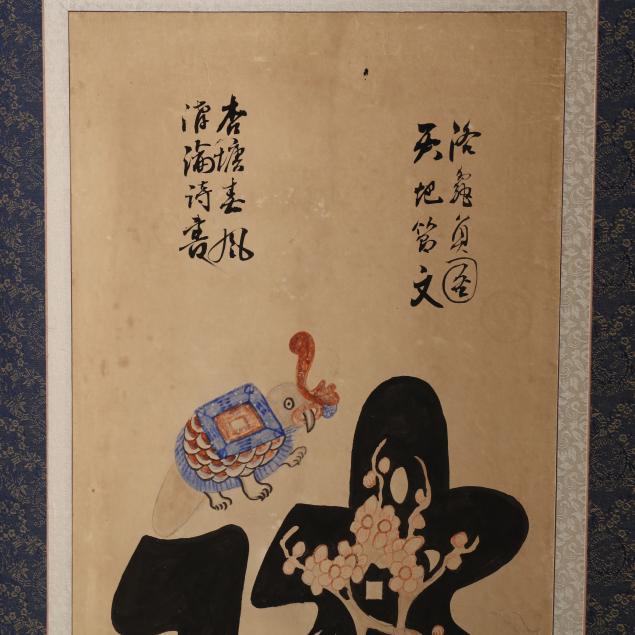 洛龜負圖
天地節文
杏壇春風
講論詩書